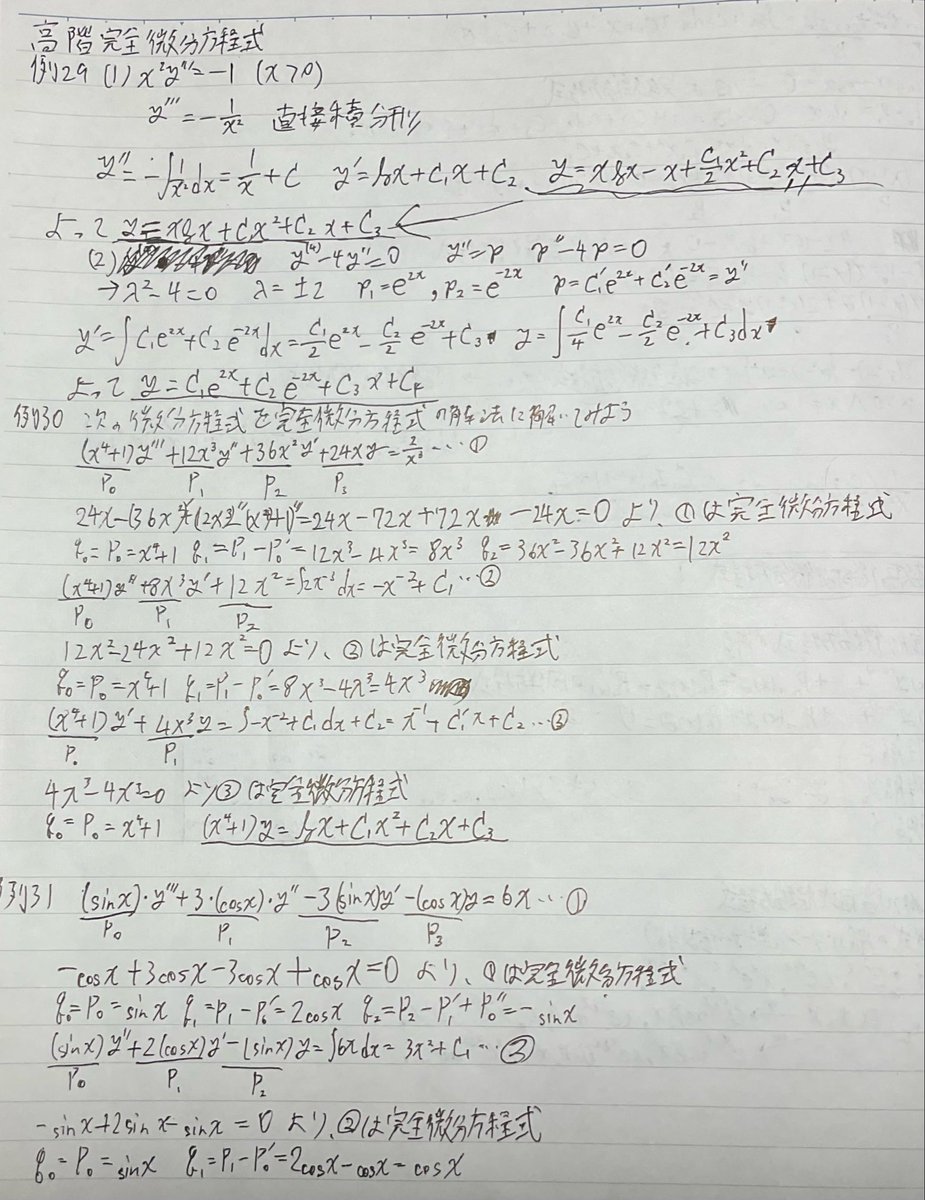 高階完全微分方程式
例29 (1) x²y'''=-1 (x>0)
y'''=-1/x² 直接積分形
y''=-∫1/x² dx=1/x+C y'=logx+C₁x+C₂ y=xlogx-x+C₁/2 x²+C₂x+C₃
よって y=xlogx+C₁x²+C₂x+C₃
(2) y⁽⁴⁾-4y''=0 y''=p p''-4p=0
→λ²-4=0 λ=±2 p₁=e²ˣ, p₂=e⁻²ˣ p=C₁'e²ˣ+C₂'e⁻²ˣ=y''
y'=∫C₁e²ˣ+C₂e⁻²ˣdx=C₁/2 e²ˣ-C₂/2 e⁻²ˣ+C₃ y=∫C₁/4 e²ˣ-C₂/2 e⁻²ˣ+C₃dx
よって y=C₁e²ˣ+C₂e⁻²ˣ+C₃x+C₄
例30 次の微分方程式を完全微分方程式の解法に解いてみよう
(x⁴+1)y'''+12x³y''+36x²y'+24xy=2/x³ …①
P₀ P₁ P₂ P₃
24x-(36x²)'+(12x³)''-(x⁴+1)'''=24x-72x+72x-24x=0 より、①は完全微分方程式
q₀=P₀=x⁴+1 q₁=P₁-P₀'=12x³-4x³=8x³ q₂=36x²-36x²+12x²=12x²
(x⁴+1)y''+8x³y'+12x²=∫2x⁻³dx=-x⁻²+C₁…②
P₀ P₁ P₂
12x²-24x²+12x²=0 より、②は完全微分方程式
q₀=P₀=x⁴+1 q₁=P₁-P₀'=8x³-4x³=4x³
(x⁴+1)y'+4x³y=∫-x⁻²+C₁dx+C₂=x⁻¹+C₁'x+C₂…③
P₀ P₁
4x³-4x³=0 より③は完全微分方程式
q₀=P₀=x⁴+1 (x⁴+1)y=logx+C₁x²+C₂x+C₃
例31 (sinx)・y'''+3・(cosx)・y''-3(sinx)y'-(cosx)y=6x…①
P₀ P₁ P₂ P₃
-cosx+3cosx-3cosx+cosx=0 より、①は完全微分方程式
q₀=P₀=sinx q₁=P₁-P₀'=2cosx q₂=P₂-P₁'+P₀''=-sinx
(sinx)y''+2(cosx)y'-(sinx)y=∫6xdx=3x²+C₁…②
P₀ P₁ P₂
-sinx+2sinx-sinx=0 より、②は完全微分方程式
q₀=P₀=sinx q₁=P₁-P₀'=2cosx-cosx=cosx